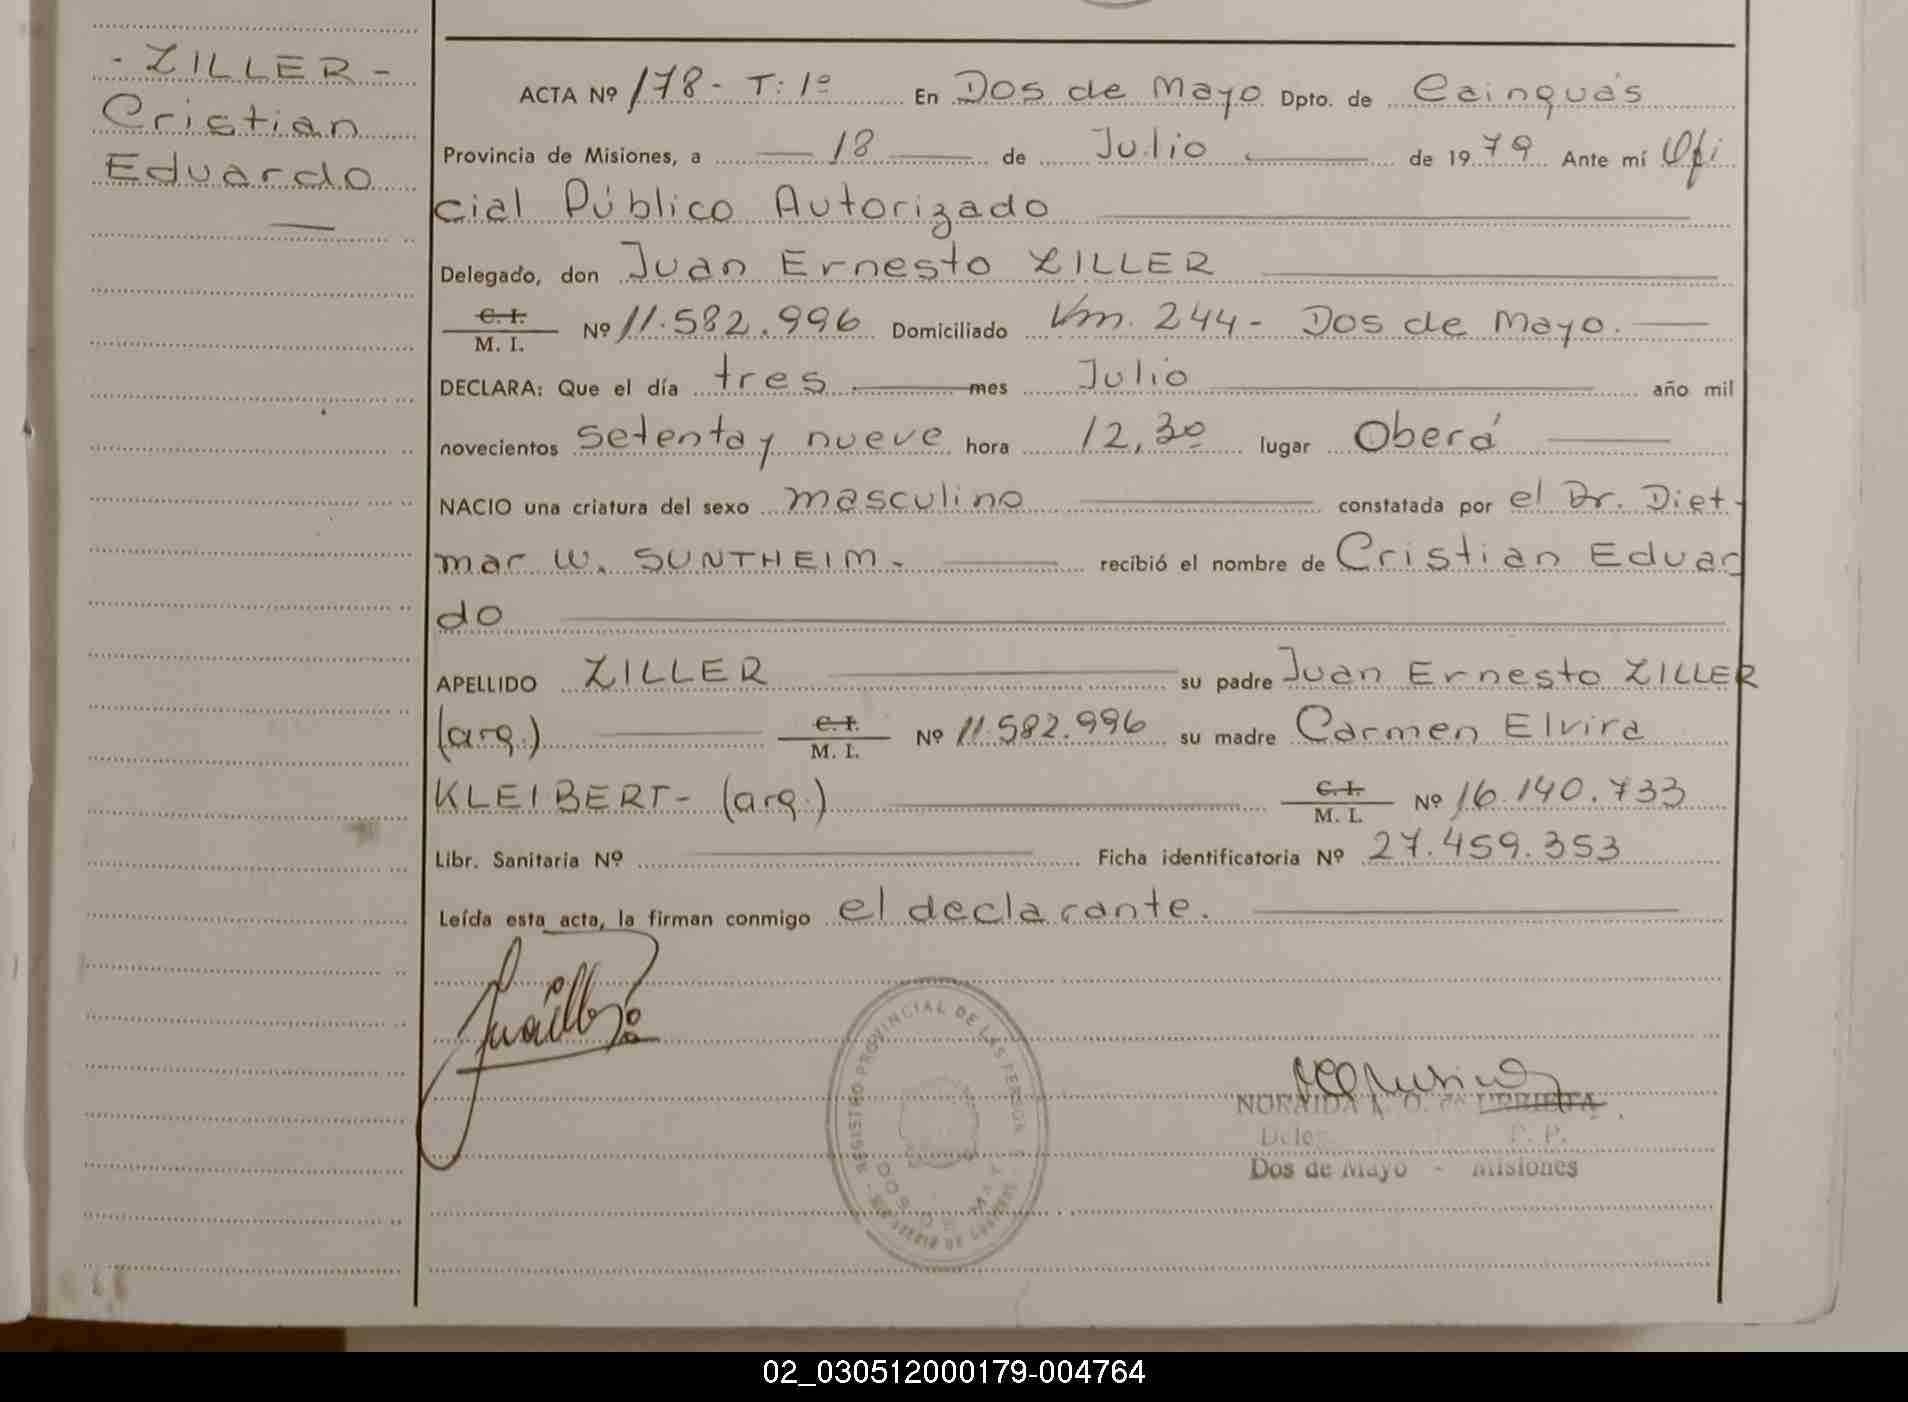 - ZILLER -
Cristian
Eduardo
ACTA Nº 178 - T: 1º En Dos de Mayo Dpto. de Cainguás
Provincia de Misiones, a 18 de Julio de 1979 Ante mí Ofi
cial Público Autorizado
Delegado, don Juan Ernesto ZILLER
C. I.
M. I. Nº 11.582.996 Domiciliado Km. 244 - Dos de Mayo.
DECLARA: Que el día tres mes Julio año mil
novecientos setenta y nueve hora 12,30 lugar Oberá
NACIO una criatura del sexo masculino constatada por el Dr. Diet-
mar W. SUNTHEIM. recibió el nombre de Cristian Eduar
do
APELLIDO ZILLER su padre Juan Ernesto ZILLER
(arg.) C. I.
M. I. Nº 11.582.996 su madre Carmen Elvira
KLEIBERT - (arg.) C. I.
M. I. Nº 16.140.733
Libr. Sanitaria Nº Ficha identificatoria Nº 27.459.353
Leída esta acta, la firman conmigo el declarante.
REGISTRO PROVINCIAL DE LAS PERSONAS
MINISTERIO DE GOBIERNO
DOS DE MAYO
NORAIDA A. O. de URRIETA
P. P.
Dos de Mayo - Misiones
02_030512000179-004764